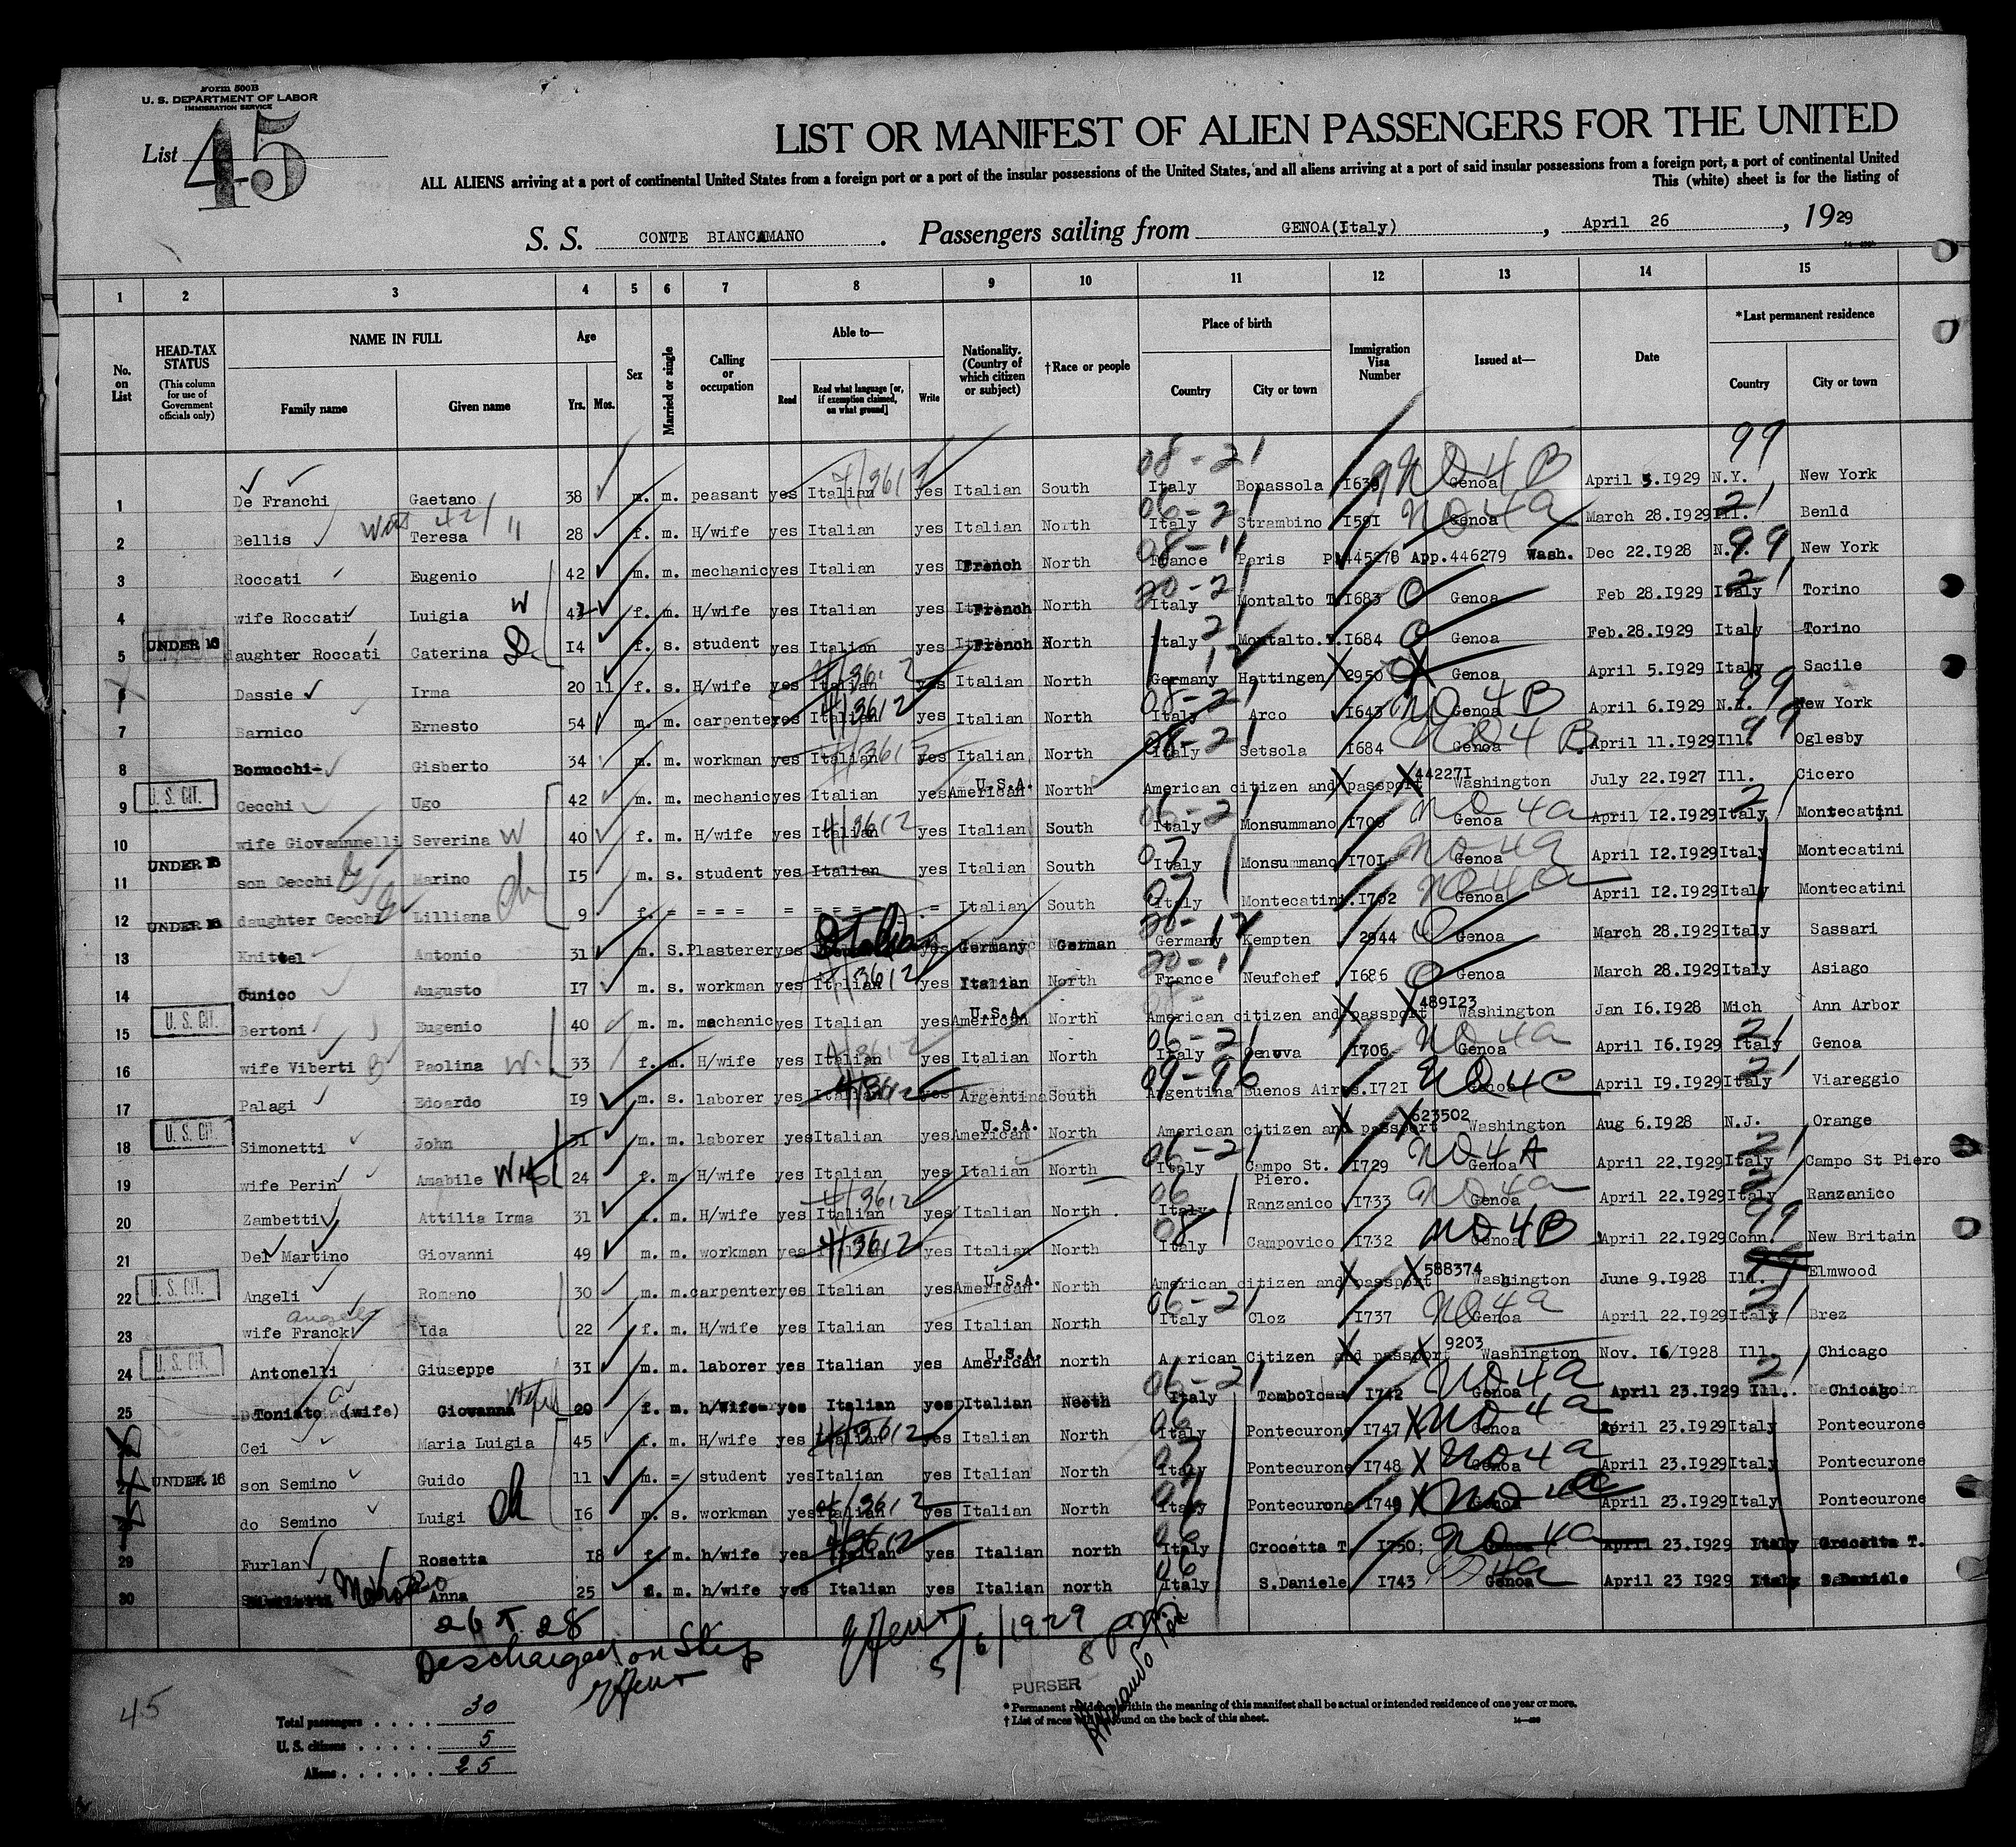 Form 500B
U. S. DEPARTMENT OF LABOR
IMMIGRATION SERVICE
List 45
LIST OR MANIFEST OF ALIEN PASSENGERS FOR THE UNITED
ALL ALIENS arriving at a port of continental United States from a foreign port or a port of the insular possessions of the United States, and all aliens arriving at a port of said insular possessions from a foreign port, a port of continental United
This (white) sheet is for the listing of
S. S. CONTE BIANCAMANO. Passengers sailing from GENOA(Italy), April 26, 1929
1 2 3 4 5 6 7 8 9 10 11 12 13 14 15
No. on List
HEAD-TAX STATUS (This column for use of Government officials only)
NAME IN FULL Family name Given name
Age Yrs. Mos.
Sex
Married or single
Calling or occupation
Able to— Read Read what language [or, if exemption claimed, on what ground] Write
Nationality. (Country of which citizen or subject)
†Race or people
Place of birth Country City or town
Immigration Visa Number
Issued at—
Date
*Last permanent residence Country City or town
1 De Franchi Gaetano 38 m. m. peasant yes Italian yes Italian South Italy Bonassola Genoa April 5.I929 N.Y. New York
2 Bellis Teresa 28 f. m. H/wife yes Italian yes Italian North Italy Strambino I59I Genoa March 28.I929 Ill. Benld
3 Roccati Eugenio 42 m. m. mechanic yes Italian yes French North France Paris 445278 App.446279 Wash. Dec 22.I928 N.Y. New York
4 wife Roccati Luigia W f. m. H/wife yes Italian yes French North Italy Montalto I683 Genoa Feb 28.I929 Italy Torino
5 UNDER 16 daughter Roccati Caterina D. I4 f. s. student yes Italian yes French North Italy Montalto. I684 Genoa Feb.28.I929 Italy Torino
6 Dassie Irma 20 11 f. s. H/wife yes Italian yes Italian North Germany Hattingen 2950 Genoa April 5.I929 Italy Sacile
7 Barnico Ernesto 54 m. m. carpenter yes Italian yes Italian North Italy Arco I643 Genoa April 6.I929 N.Y. New York
8 Bonucchi Gisberto 34 m. m. workman yes Italian yes Italian North Italy Setsola I684 Genoa April 11.I929 Ill. Oglesby
9 U. S. CIT. Cecchi Ugo 42 m. m. mechanic yes Italian yes American U.S.A. North American citizen and passport 44227I Washington July 22.I927 Ill. Cicero
10 wife Giovannnelli Severina W 40 f. m. H/wife yes Italian yes Italian South Italy Monsummano Genoa April I2.I929 Italy Montecatini
11 UNDER 16 son Cecchi Marino I5 m. s. student yes Italian yes Italian South Italy Monsummano I70I Genoa April I2.I929 Italy Montecatini
12 UNDER 16 daughter Cecchi Lilliana 9 f. = = = = = = = = = Italian South Italy Montecatini. I702 Genoa April I2.I929 Italy Montecatini
13 Knittel Antonio 31 m. S. Plasterer yes Italian yes Germany German Germany Kempten 2944 Genoa March 28.I929 Italy Sassari
14 Cunico Augusto I7 m. s. workman yes Italian yes Italian North France Neufchef I686 Genoa March 28.I929 Italy Asiago
15 U. S. CIT. Bertoni Eugenio 40 m. m. mechanic yes Italian yes American U.S.A. North American citizen and passport 489I23 Washington Jan I6.I928 Mich Ann Arbor
16 wife Viberti Paolina W. 33 f. m. H/wife yes Italian yes Italian North Italy Genova I706 Genoa April I6.I929 Italy Genoa
17 Palagi Edoardo I9 m. s. laborer yes Italian yes Argentina South Argentina Buenos Aires. I72I Genoa April I9.I929 Italy Viareggio
18 U. S. CIT. Simonetti John 31 m. m. laborer yes Italian yes American U.S.A. North American citizen and passport 623502 Washington Aug 6.I928 N.J. Orange
19 wife Perin Amabile Wife 24 f. m. H/wife yes Italian yes Italian North Italy Campo St. Piero. I729 Genoa April 22.I929 Italy Campo St Piero
20 Zambetti Attilia Irma 31 f. m. H/wife yes Italian yes Italian North Italy Ranzanico I733 Genoa April 22.I929 Italy Ranzanico
21 Del Martino Giovanni 49 m. m. workman yes Italian yes Italian North Italy Campovico I732 Genoa April 22.I929 Conn. New Britain
22 U. S. CIT. Angeli Romano 30 m. m. carpenter yes Italian yes American U.S.A. North American citizen and passport 588374 Washington June 9.I928 Ill. Elmwood
23 wife Franck Angeli Ida 22 f. m. H/wife yes Italian yes Italian North Italy Cloz I737 Genoa April 22.I929 Italy Brez
24 U. S. CIT. Antonelli Giuseppe 31 m. m. laborer yes Italian yes American U.S.A. north American Citizen and passport 9203 Washington Nov. I6/I928 Ill. Chicago
25 Toniato (wife) Giovanna Wife 20 f. m. h/wife yes Italian yes Italian North Italy I742 Genoa April 23.I929 Ill. Chicago
26 Cei Maria Luigia 45 f. m. H/wife yes Italian yes Italian North Italy Pontecurone I747 Genoa April 23.I929 Italy Pontecurone
27 UNDER 16 son Semino Guido 11 m. = student yes Italian yes Italian North Italy Pontecurone I748 Genoa April 23.I929 Italy Pontecurone
28 do Semino Luigi I6 m. s. workman yes Italian yes Italian North Italy Pontecurone I749 Genoa April 23.I929 Italy Pontecurone
29 Furlan Rosetta I8 f. m. h/wife yes Italian yes Italian north Italy Crocetta T. I750 Genoa April 23.I929 Italy Crocetta T.
30 Anna 25 m. h/wife yes Italian yes Italian north Italy S.Daniele I743 Genoa April 23 I929 Italy S.Daniele
26 T. 28
Descharged on Ship
5/6/1929
8 pm
PURSER
* Permanent residence within the meaning of this manifest shall be actual or intended residence of one year or more.
† List of races will be found on the back of this sheet.
45
Total passengers . . . . 30
U. S. citizens . . . . . 5
Aliens . . . . . . 25